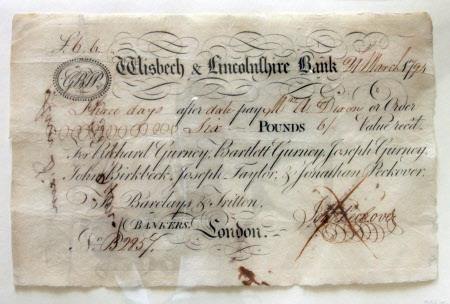 £6.6.
Wisbech & Lincolnshire Bank 21 March 1794
Three days after date pay Mr. A Deacon or Order
Six POUNDS 6/- Value recd.
For Richard Gurney, Bartlett Gurney, Joseph Gurney,
John Birkbeck, Joseph Taylor, & Jonathan Peckover.
To Barclays & Tritton,
BANKERS, London.
No. B2257.
Jon Peckover